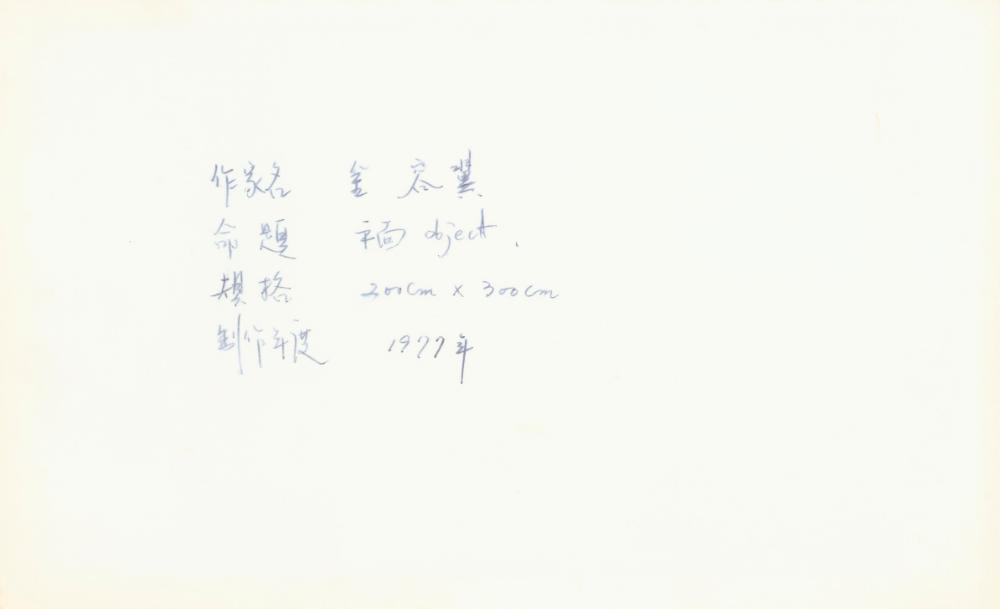 作家名 金容翼
命題 平面 object.
規格 200cm × 300cm
製作年度 1977年